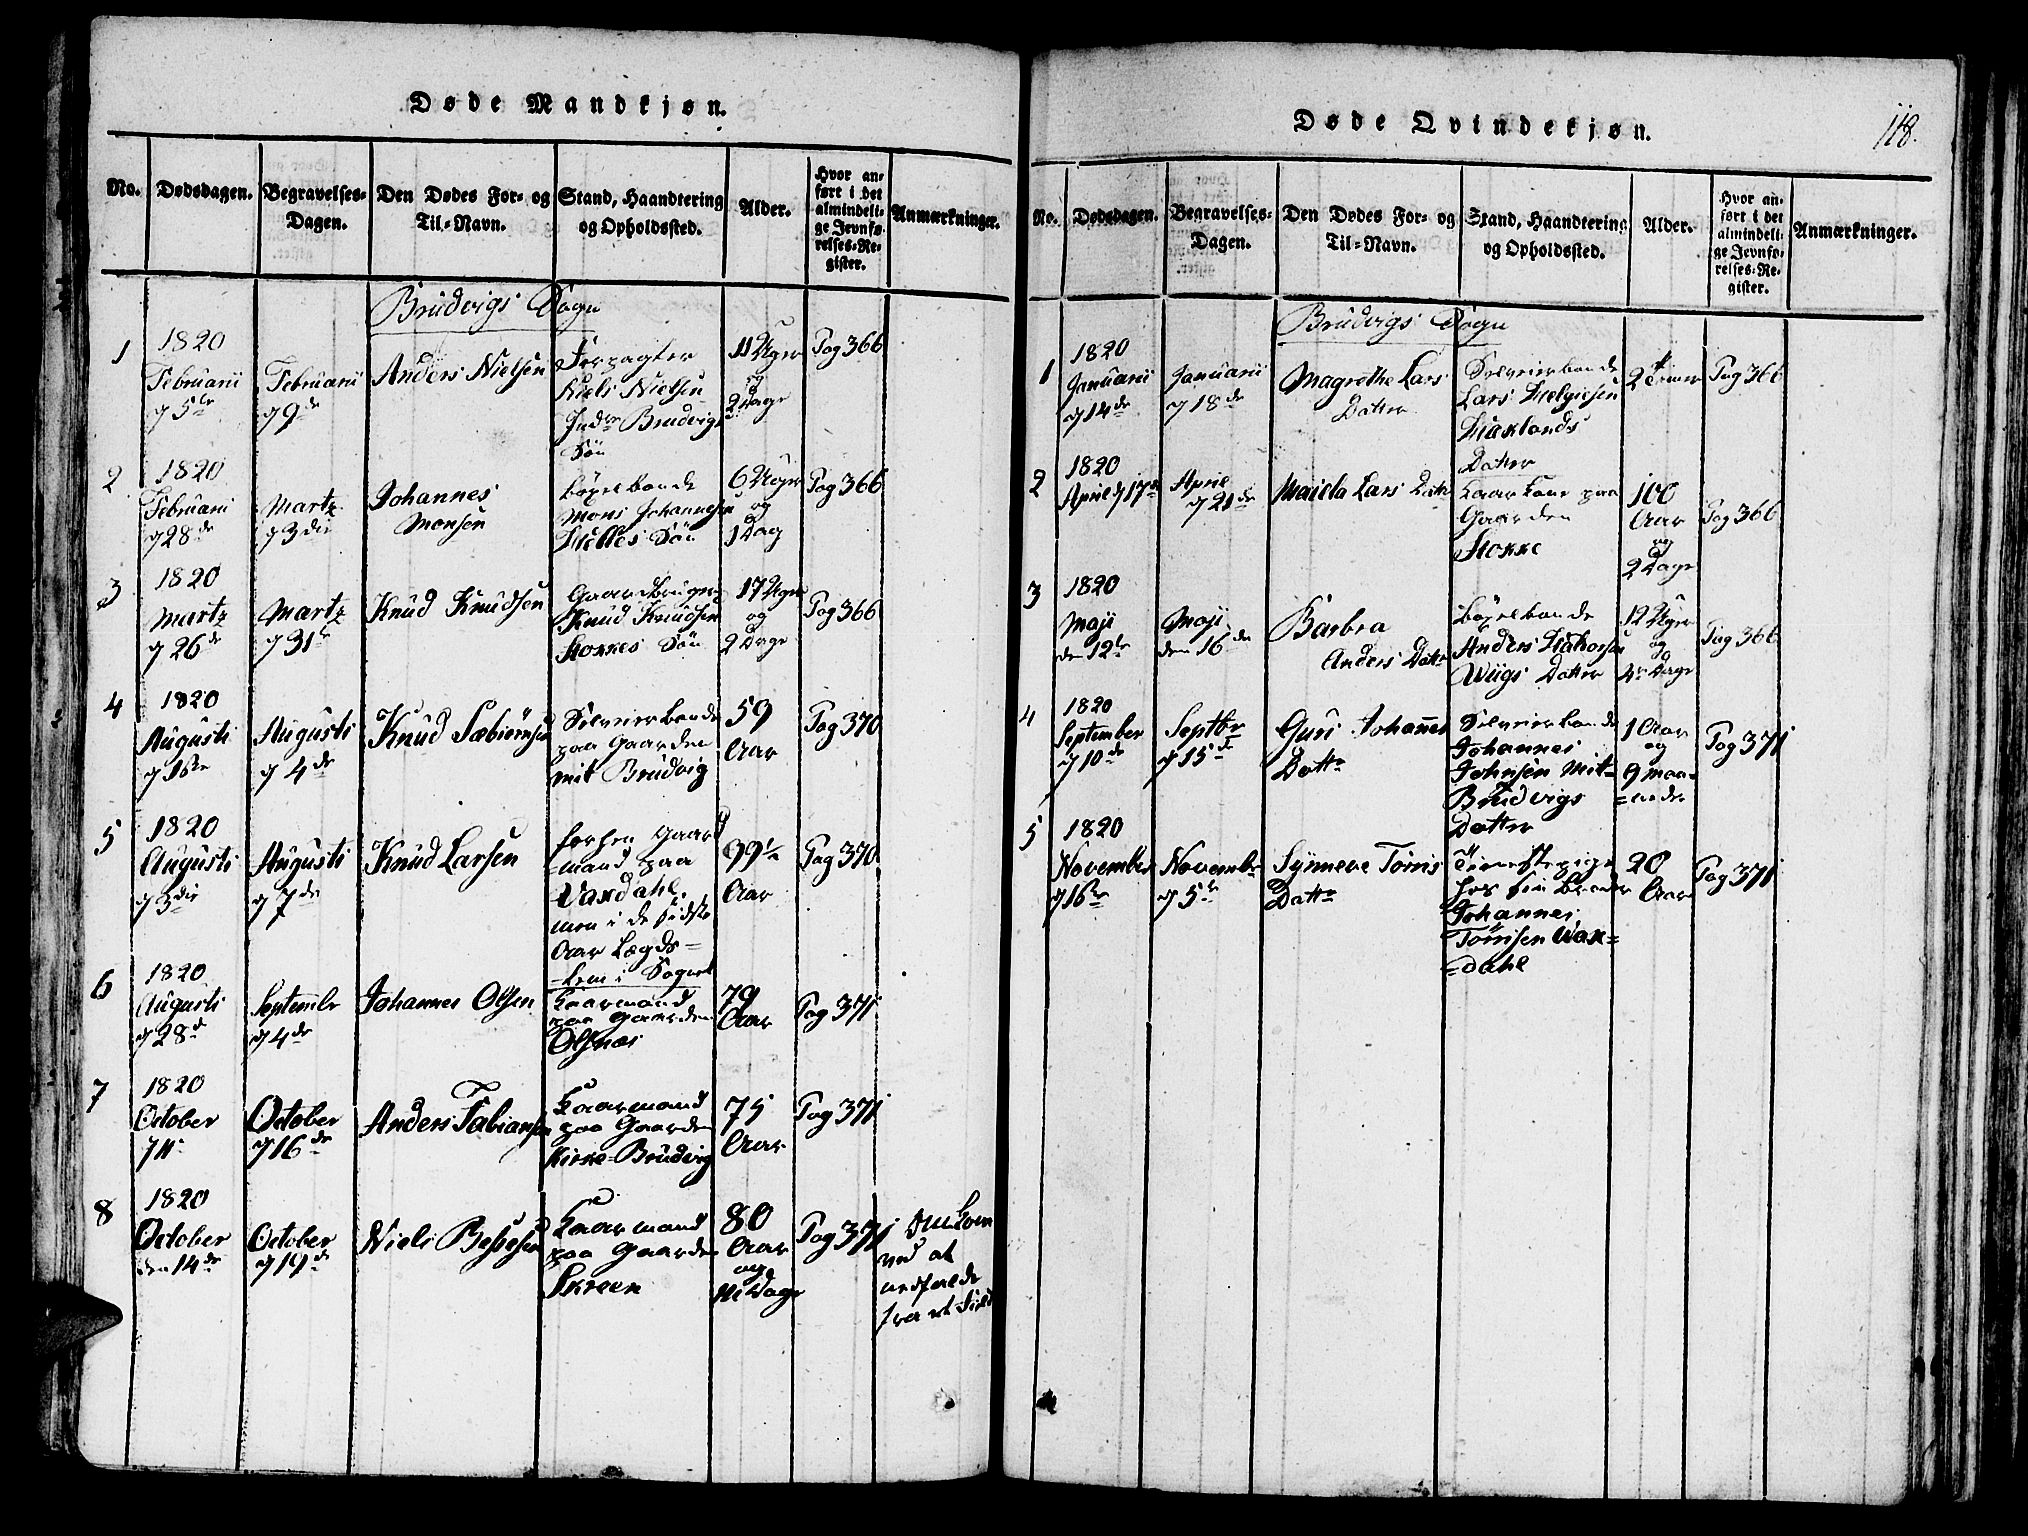 Døde Mandkjøn.
No.
Dødsdagen.
Begravelses-
Dagen.
Den Dødes For- og
Til-Navn.
Stand, Haandtering
og Opholdssted.
Alder.
Hvor an-
ført i det
almindeli-
ge Jevnfø-
relses-Re-
gister.
Anmærkninger.
Brudvigs Sogn
1
1820
Februarii
d 5te
Februarii
d 9de
Anders Nielsen
Forpagter
Niels Nielsen
Indre Brudvigs
Søn
11 Uger
og
2 Dage
Pag 366
2
1820
Februarii
d 28de
Martz
d 3die
Johannes
Monsen
Bøxelbonde
Mons Johannesen
Søn
6 Uger
og
1 Dag
Pag 366
3
1820
Martz
d 26de
Martz
d 31te
Knud Knudsen
Gaardbruger
Knud Knudsen
Stokkes Søn
17 Uger
og
2 Dage
Pag 366
4
1820
Augusti
d 1ste
Augusti
d 4de
Knud Sæbiørnsen
Selveierbonde
paa Gaarden
mit Brudvig
59
Aar
Pag 370
5
1820
Augusti
d 3die
Augusti
d 7de
Knud Larsen
forhen Gaard
=mand paa
Vaxdahl,
men i de sidste
Aar Lægds=
=lem i Sognet
99½
Aar
Pag 370
6
1820
Augusti
d 28de
Septembr
d 4de
Johannes Olsen
Kaarmand
paa Gaarden
Olsnæs
79
Aar
Pag 371
7
1820
October
d 11
October
d 16de
Anders Fabiansen
Kaarmand
paa Gaarden
Kirke=Brudvig
75
Aar
Pag 371
8
1820
October
den 14de
October
d 19de
Niels Bessesen
Kaarmand
paa Gaarden
Skreen
80
Aar
og
Dage
Pag 371
Omkom
ved at
nedfalde
fra et
Døde Qvindekjøn.
118.
No.
Dødsdagen.
Begravelses-
Dagen.
Den Dødes For- og
Til-Navn.
Stand, Haandtering
og Opholdssted.
Alder.
Hvor an-
ført i det
almindeli-
ge Jevnfø-
relses-Re-
gister.
Anmærkninger.
Brudvigs Sogn
1
1820
Januarii
d 14de
Januarii
d 18de
Magrethe Lars
Datter
Selveierbonde
Lars Helgiesen
Datter
2 Timer
Pag 366
2
1820
April d 17de
April
d 21de
Lars Datr
Kaarkone paa
Gaarden
Stokke
100
Aar
og
2 Dage
Pag 366
3
1820
Maji
den 12te
Maji
den 16de
Barbra
Anders Dattr
Bøxelbonde
Anders
Wiigs Datter
12 Uger
og
Dage
Pag 366
4
1820
September
d 10de
Septbr
d 15de
Guri Johannes
Dattr
Selveierbonde
Johannes
Johnsen Mit=
Brudvigs
Datter
1 Aar
og
9 Maa=
=neder
Pag 371
5
1820
November
d 1ste
Novembr
d 5te
Synneve Tørris
Dattr
Tienestepige
hos sin Broder
Johannes
Tørrisen Wax=
=dahl
20
Aar
Pag 371